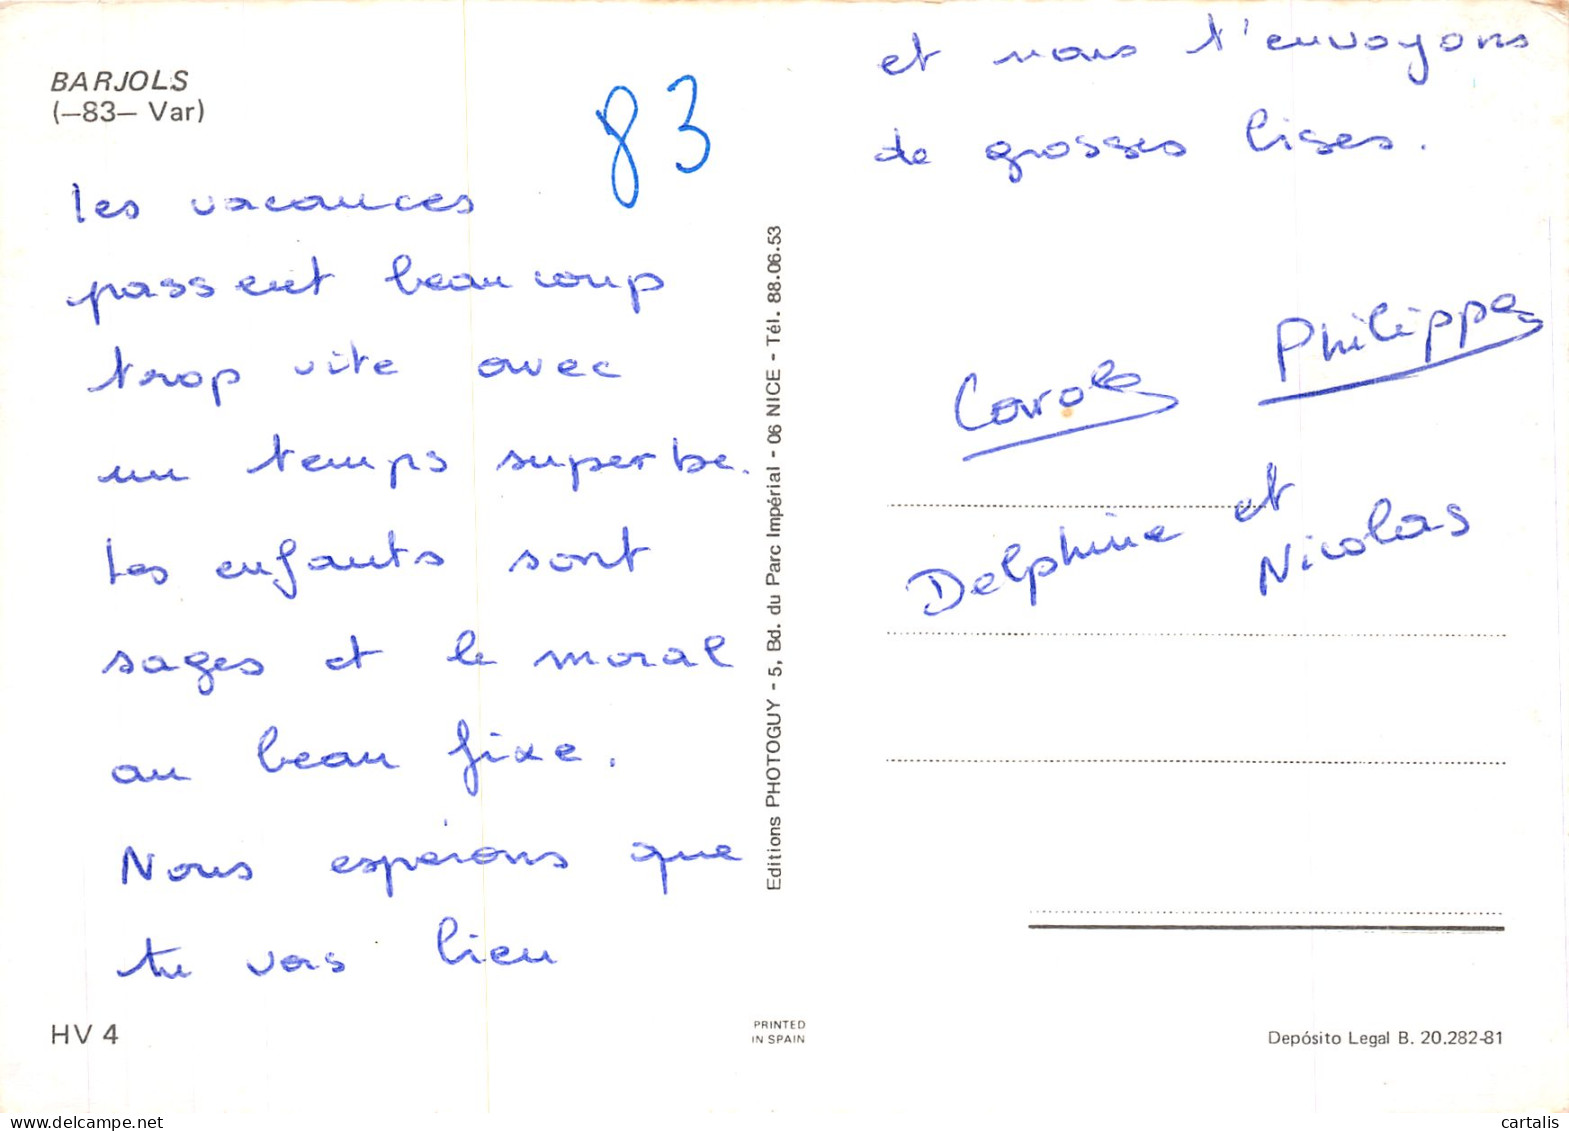 BARJOLS
(—83— Var)
83
les vacances
passent beaucoup
trop vite avec
un temps superbe.
Les enfants sont
sages et le moral
au beau fixe.
Nous espérons que
tu vas bien
et nous t'envoyons
de grosses bises.
Carole Philippe
Delphine et
Nicolas
Editions PHOTOGUY - 5, Bd. du Parc Impérial - 06 NICE - Tél. 88.06.53
HV 4
PRINTED
IN SPAIN
Depósito Legal B. 20.282-81
cartalis